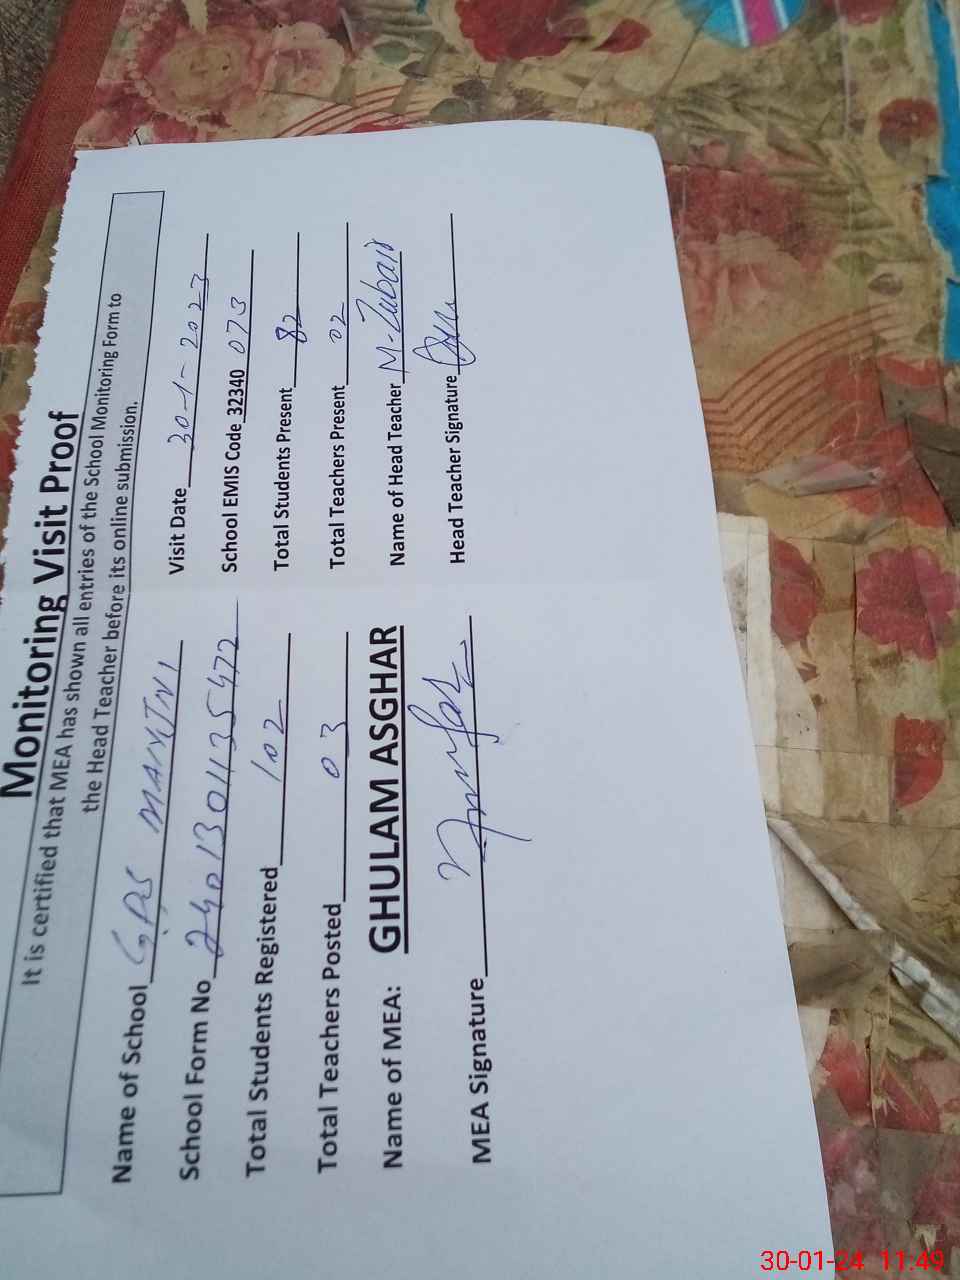 Monitoring Visit Proof
It is certified that MEA has shown all entries of the School Monitoring Form to
the Head Teacher before its online submission.
Name of School GPS Visit Date 30-1-2023
School Form No 2401301135472 School EMIS Code 32340 073
Total Students Registered 102 Total Students Present 82
Total Teachers Posted 03 Total Teachers Present 02
Name of MEA: GHULAM ASGHAR Name of Head Teacher M-Zubair
MEA Signature Head Teacher Signature
30-01-24 11:49